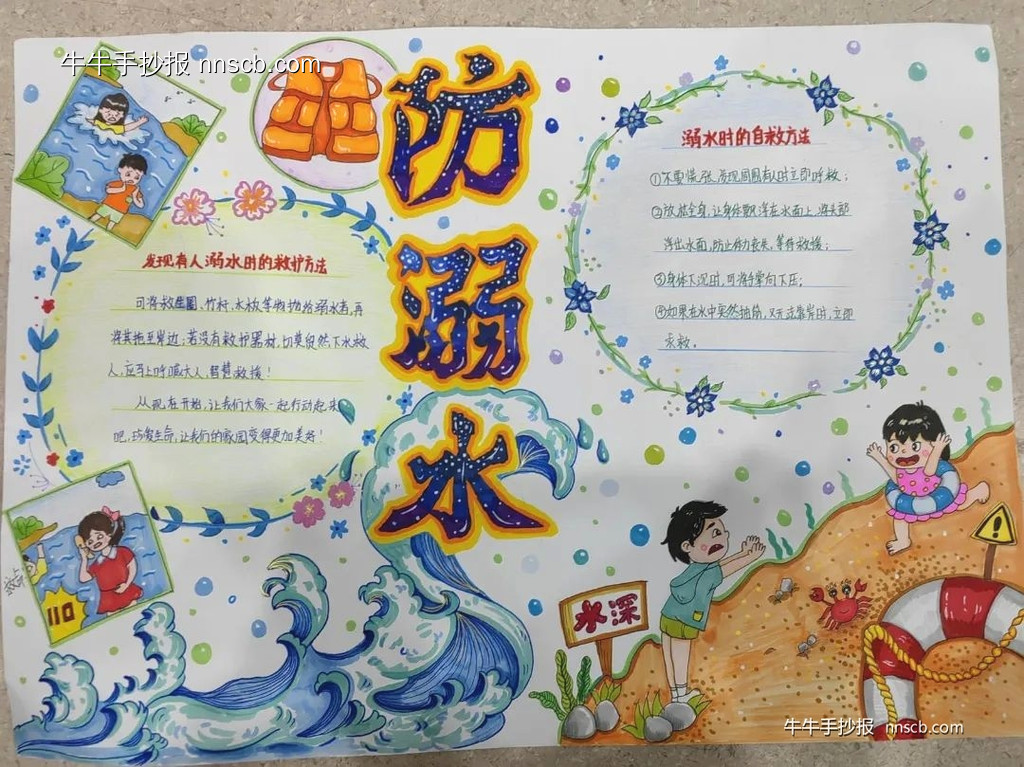 牛牛手抄报 nnscb.com
防溺水
溺水时的自救方法
①不要慌张,发现周围有人时立即呼救;
②放松全身,让身体飘浮在水面上,将头部
浮出水面,防止体力丧失,等待救援;
③身体下沉时,可将手掌向下压;
④如果在水中突然抽筋,又无法靠岸时,立即
求救。
发现有人溺水时的救护方法
可将救生圈,竹杆,木板等物抛给溺水者,再
将其拖至岸边;若没有救护器材,切莫贸然下水救
人,应马上呼喊大人,智慧救援!
从现在开始,让我们大家一起行动起来
吧,珍爱生命,让我们的家园变得更加美好!
110
水深
!
牛牛手抄报 nnscb.com